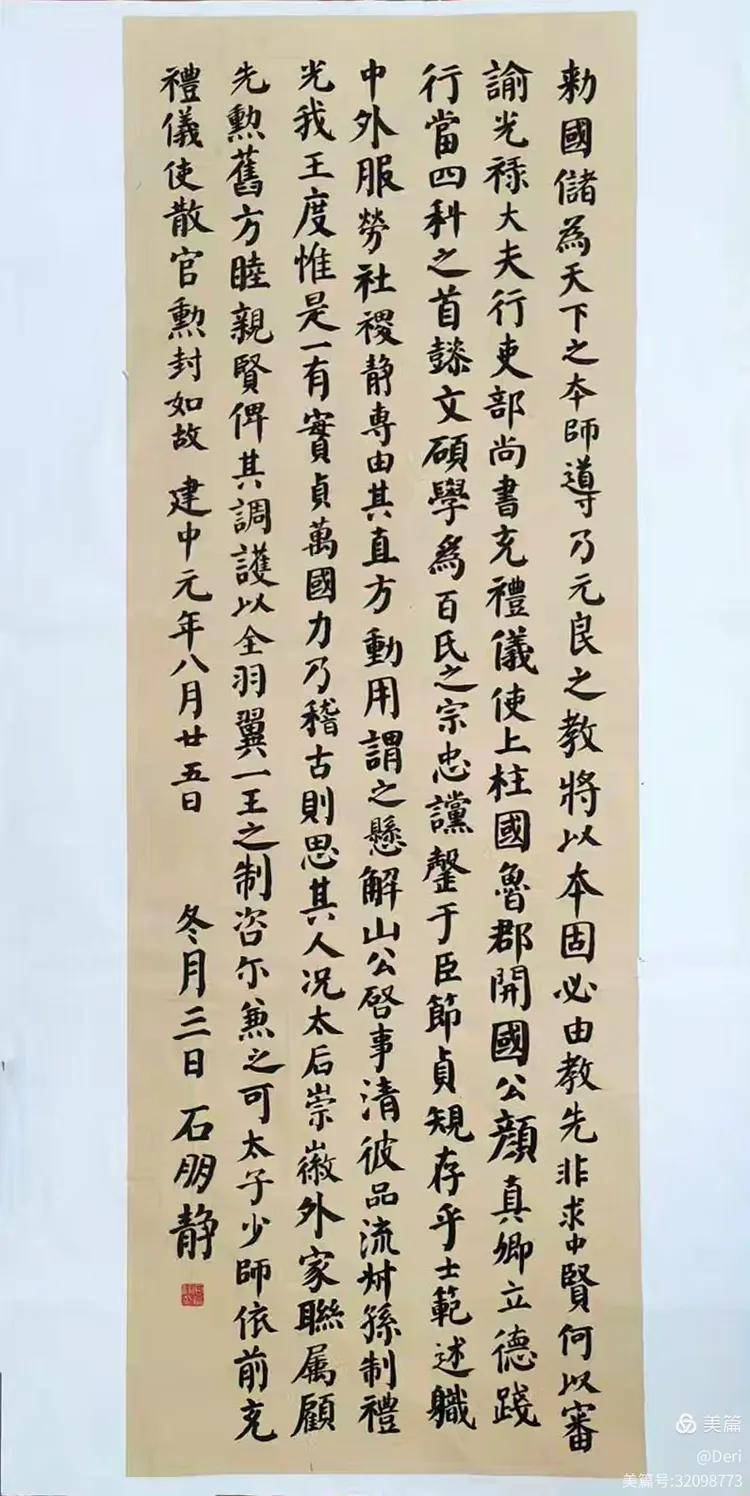 勅國儲為天下之本師導乃元良之教將以本固必由教先非求中賢何以審
諭光祿大夫行吏部尚書充禮儀使上柱國魯郡開國公顏真卿立德踐
行當四科之首懿文碩學為百氏之宗忠讜罄于臣節貞規存乎士範述職
中外服勞社稷静專由其直方動用謂之懸解山公啓事清彼品流叔孫制禮
光我王度惟是一有實貞萬國力乃稽古則思其人況太后崇徽外家聯属顧
先勲舊方睦親賢俾其調護以全羽翼一王之制咨尔兼之可太子少師依前充
禮儀使散官勲封如故 建中元年八月廿五日 冬月三日 石朋静
美篇
@Deri
美篇号:32098773